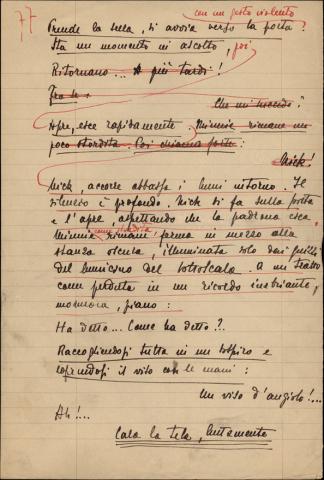 77
con un gesto violento
Prende la sella, si avvia verso la porta.
Sta un momento in ascolto, poi
Ritornano... A più tardi!
Fra sé:
Che mi succede?
Apre, esce rapidamente. Minnie rimane un
poco stordita. Poi chiama forte:
Nick!
Nick, accorre abbassa i lumi intorno. Il
silenzio è profondo. Nick si fa sulla porta
e l'apre, aspettando che la padrona esca.
come stordita
Minnie rimani ferma in mezzo alla
stanza oscura, illuminata solo dai guizzi
del lumicino del sottoscala. A un tratto
come perduta in un ricordo inebriante,
mormora, piano:
Ha detto... Come ha detto?..
Raccogliendosi tutta in un sospiro e
coprendosi il viso con le mani:
Un viso d'angiolo!...
Ah!...
Cala la tela, lentamente